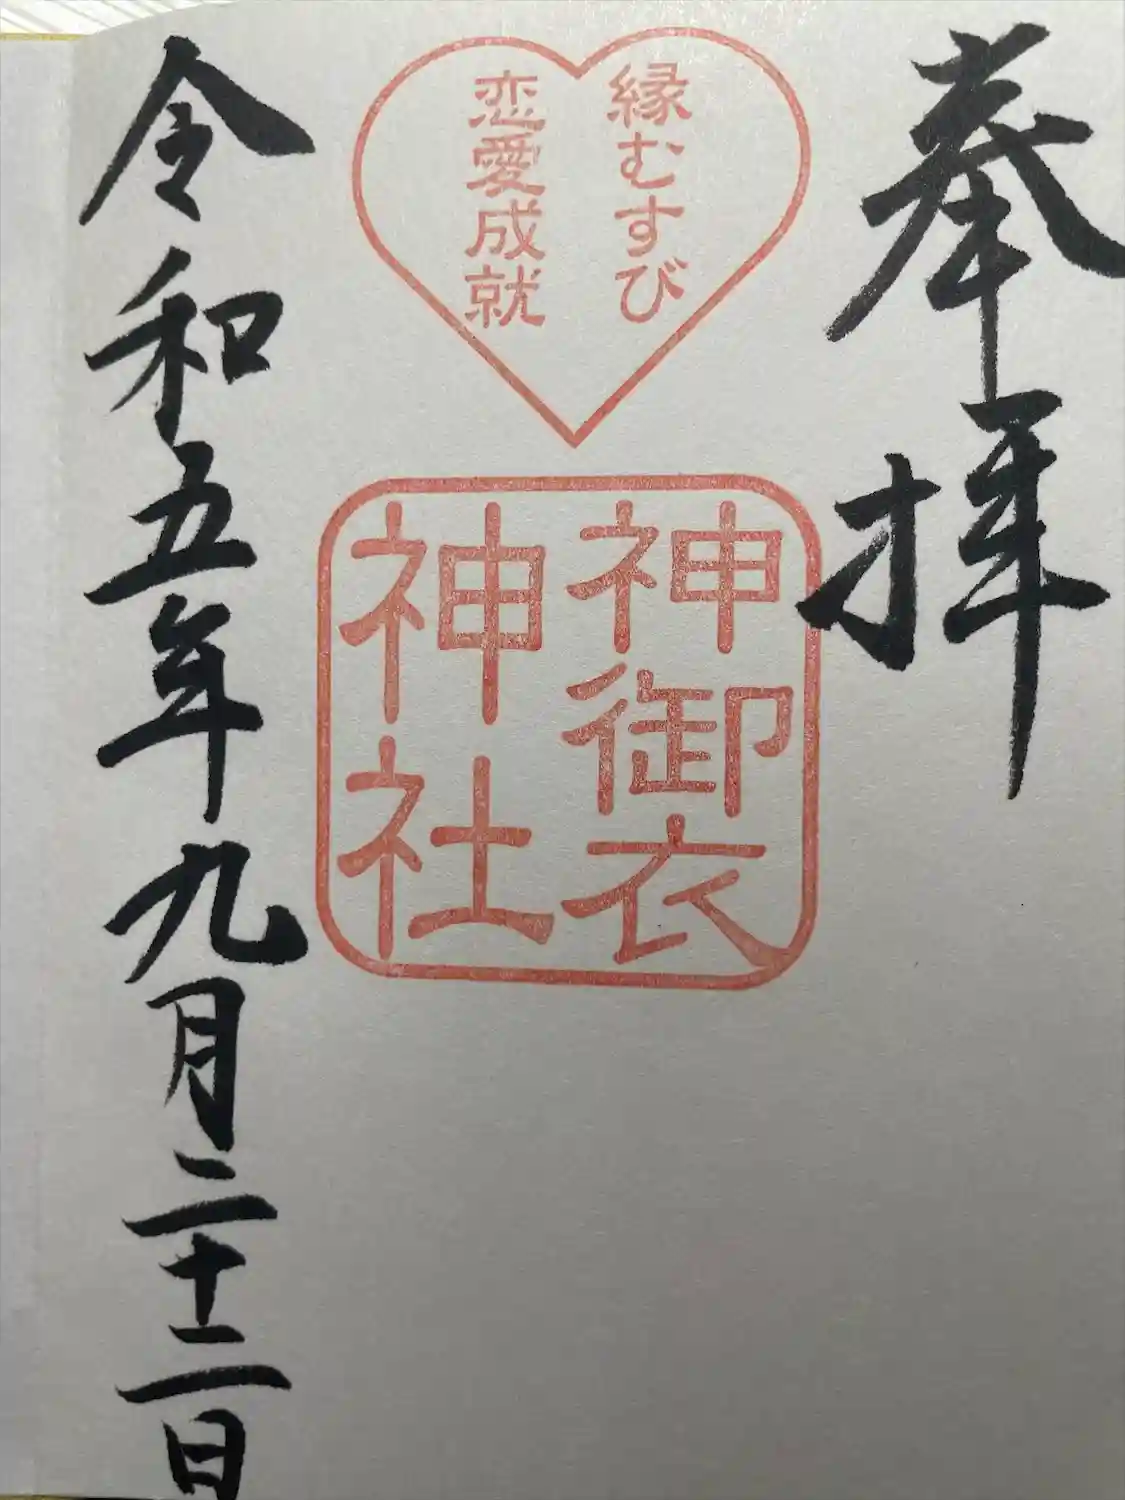 奉拝
縁むすび
恋愛成就
神御衣
神社
令和五年九月二十二日